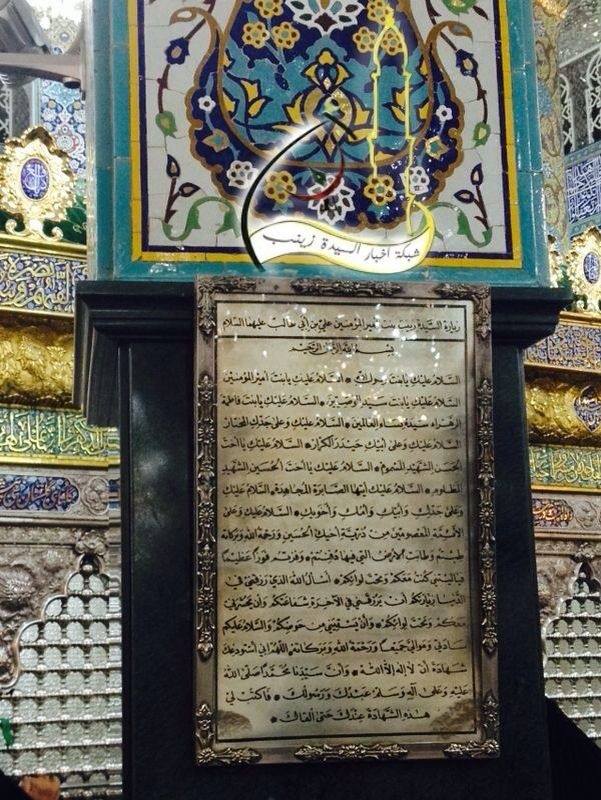 شبكة اخبار السيدة زينب
زيارة السيدة زينب بنت أمير المؤمنين علي بن أبي طالب عليهما السلام
بسم الله الرحمن الرحيم
السلام عليك يا بنت رسول الله * السلام عليك يا بنت أمير المؤمنين
السلام عليك يا بنت سيد الوصيين * السلام عليك يا بنت فاطمة
الزهراء سيدة نساء العالمين * السلام عليك وعلى جدك المختار
السلام عليك وعلى أبيك حيدر الكرار * السلام عليك يا أخت
الحسن الشهيد المسموم * السلام عليك يا أخت الحسين الشهيد
المظلوم * السلام عليك أيتها الصابرة المجاهدة * السلام عليك
وعلى جدك وأبيك وأمك وأخويك * السلام عليك وعلى
الأئمة المعصومين من ذرية أخيك الحسين ورحمة الله وبركاته
طبتم وطابت الأرض التي فيها دفنتم * وفزتم فوزا عظيما
فياليتني كنت معكم وتحت لوائكم * أسأل الله الذي رزقني في
الدنيا زيارتكم أن يرزقني في الآخرة شفاعتكم وأن يحشرني
معكم وتحت لوائكم * وأن يسقيني من حوضكم * والسلام عليكم
سادتي وموالي جميعا ورحمة الله وبركاته * اللهم إني أستودعك
شهادة أن لا إله إلا الله * وأن سيدنا محمدا صلى الله
عليه وعلى آله وسلم عبدك ورسولك * فاكتب لي
هذه الشهادة عندك حتى ألقاك *